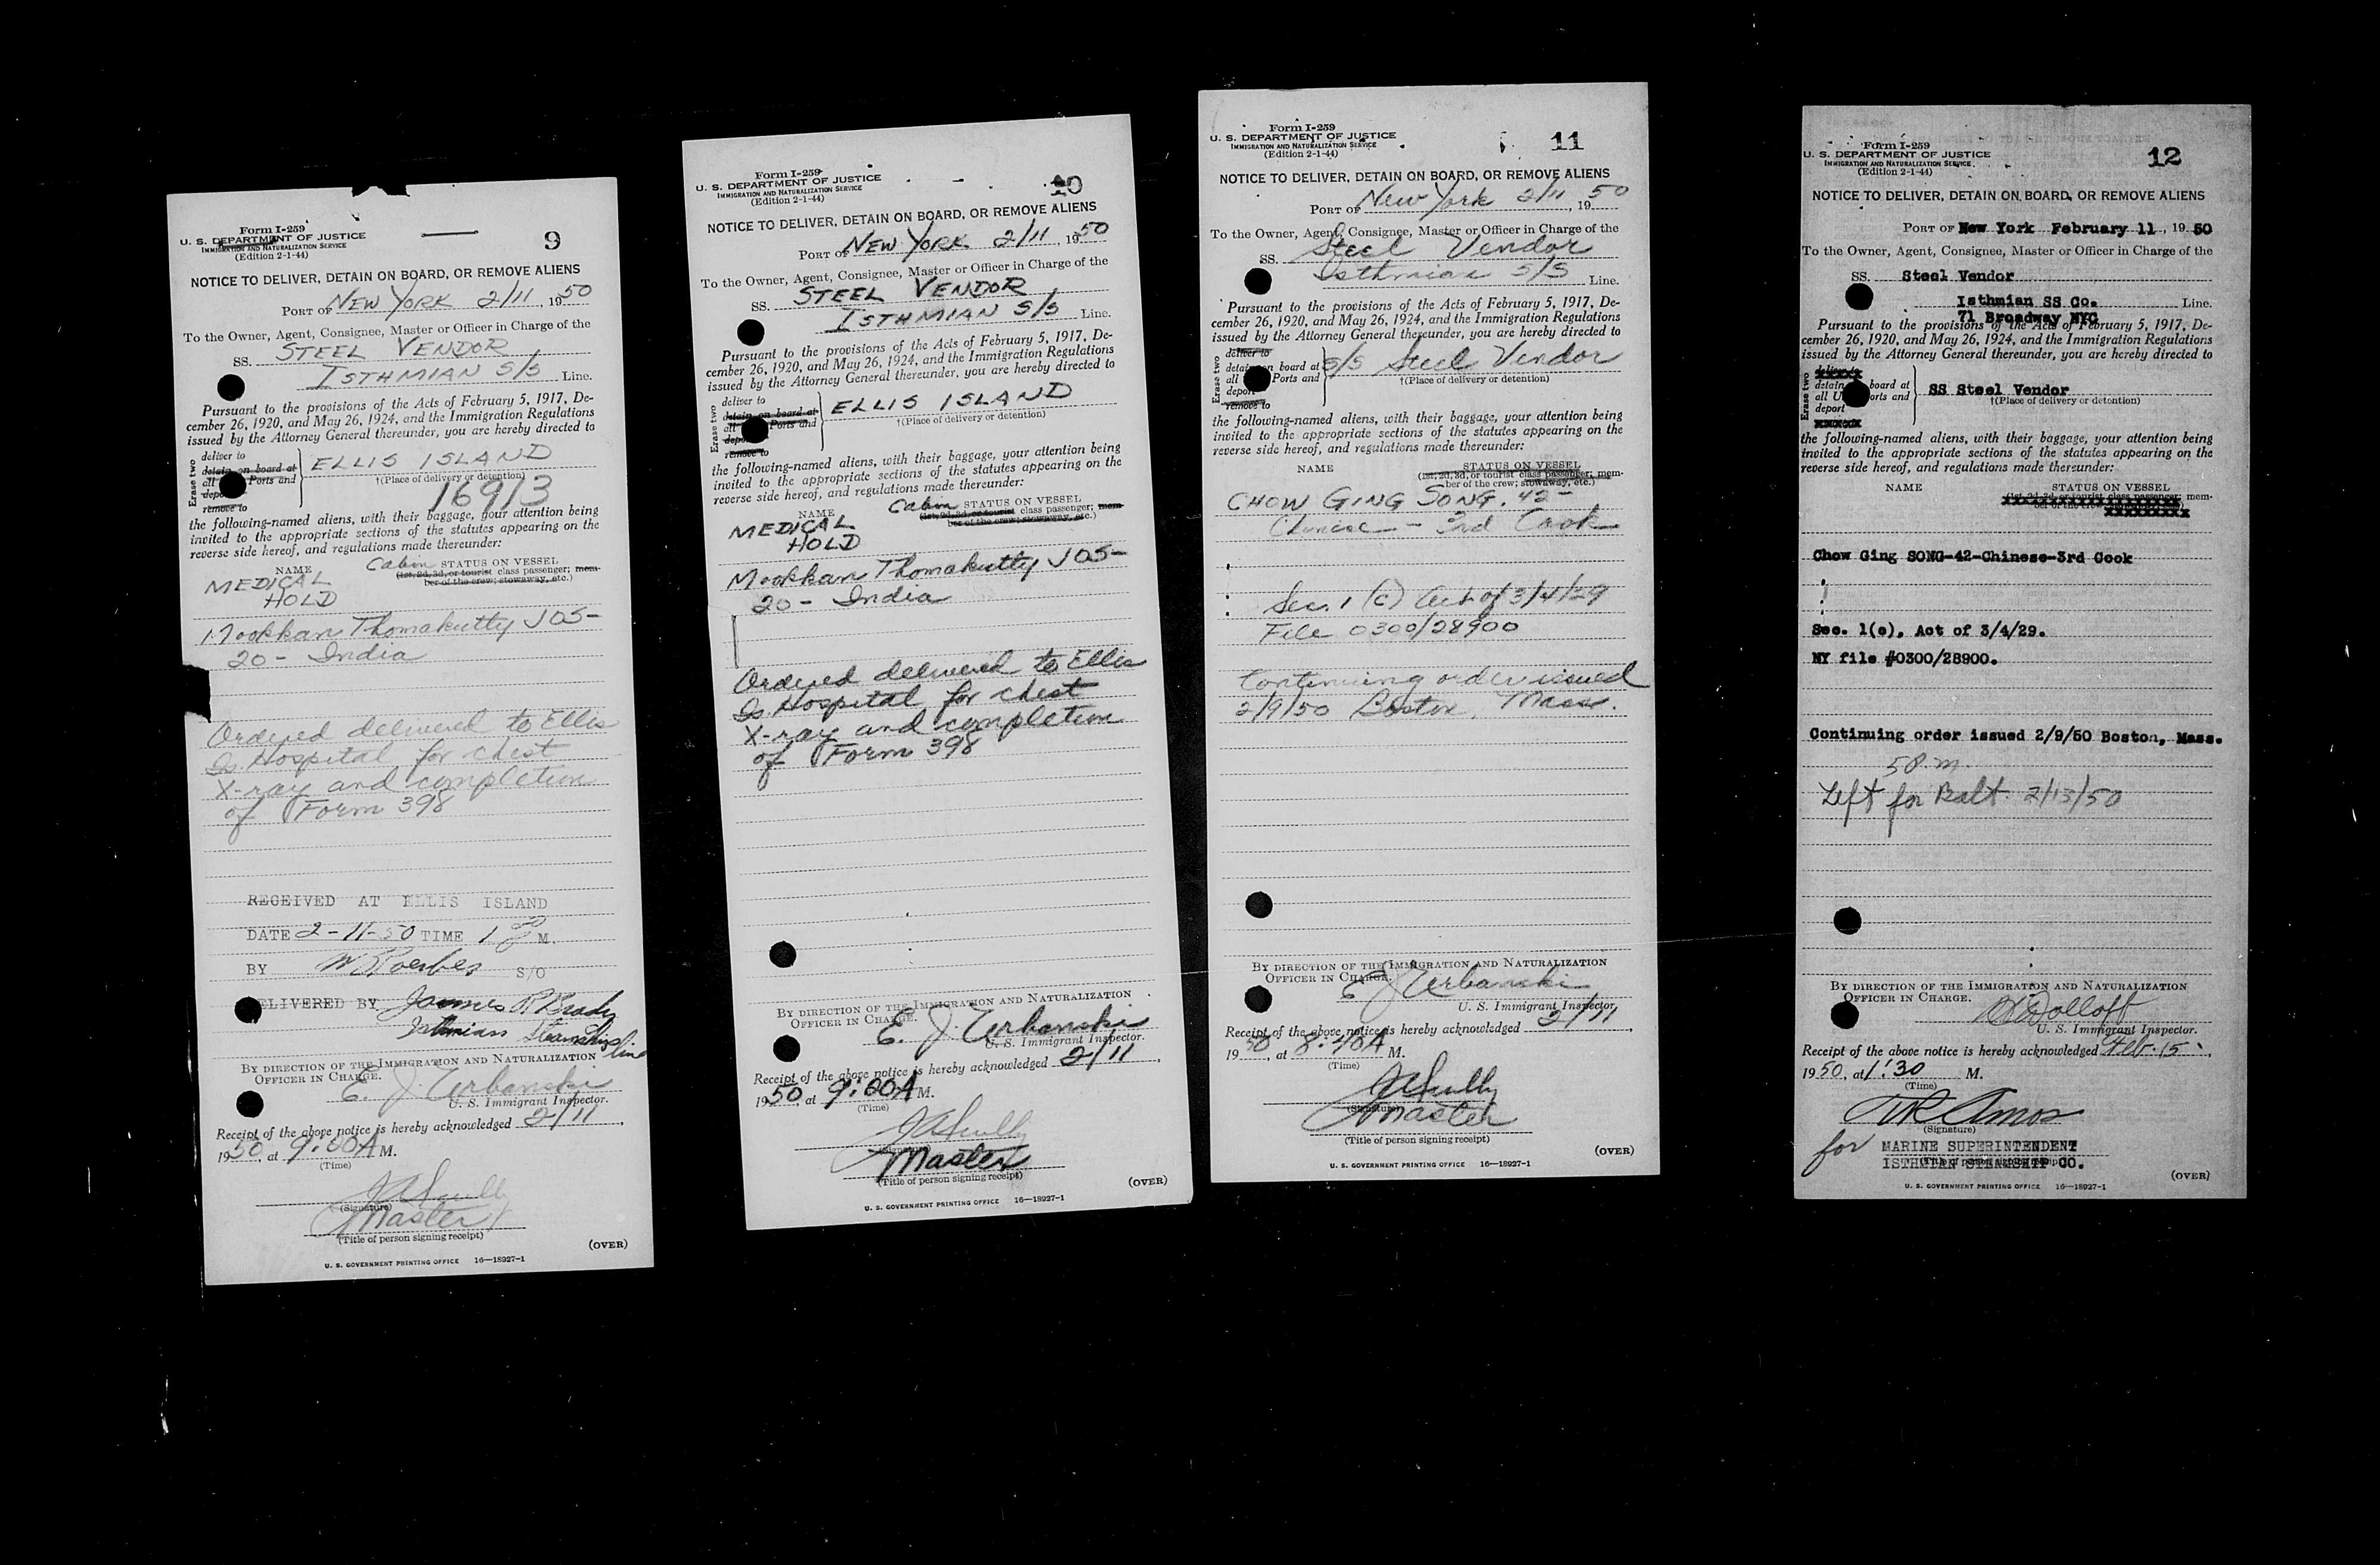 Form I-259
U. S. DEPARTMENT OF JUSTICE
IMMIGRATION AND NATURALIZATION SERVICE
(Edition 2-1-44)
9
NOTICE TO DELIVER, DETAIN ON BOARD, OR REMOVE ALIENS
PORT OF NEW YORK 2/11, 1950
To the Owner, Agent, Consignee, Master or Officer in Charge of the
SS. STEEL VENDOR
ISTHMIAN S/S Line.
Pursuant to the provisions of the Acts of February 5, 1917, De-
cember 26, 1920, and May 26, 1924, and the Immigration Regulations
issued by the Attorney General thereunder, you are hereby directed to
Erase two
deliver to
detain on board at
all Ports and
remove to
ELLIS ISLAND
†(Place of delivery or detention)
169/3
the following-named aliens, with their baggage, your attention being
invited to the appropriate sections of the statutes appearing on the
reverse side hereof, and regulations made thereunder:
NAME Cabin STATUS ON VESSEL
(1st, 2d, 3d, or tourist class passenger; mem-
ber of the crew; stowaway, etc.)
MEDICAL
HOLD
Mookkan Thomakutty JOS-
20 - India
Ordered delivered to Ellis
Is. Hospital for chest
X-ray and completion
of Form 398
RECEIVED AT ELLIS ISLAND
DATE 2-11-50 TIME 1 P M.
BY S/O
DELIVERED BY James P Brady
Isthmian Steamship Line
BY DIRECTION OF THE IMMIGRATION AND NATURALIZATION
OFFICER IN CHARGE.
E. J. Urbanski
U. S. Immigrant Inspector.
Receipt of the above notice is hereby acknowledged 2/11,
1950, at 9:00 A M.
(Time)
J A Scully
(Signature)
Master
(Title of person signing receipt)
(OVER)
U. S. GOVERNMENT PRINTING OFFICE 16—18927-1
Form I-259
U. S. DEPARTMENT OF JUSTICE
IMMIGRATION AND NATURALIZATION SERVICE
(Edition 2-1-44)
10
NOTICE TO DELIVER, DETAIN ON BOARD, OR REMOVE ALIENS
PORT OF NEW YORK 2/11, 1950
To the Owner, Agent, Consignee, Master or Officer in Charge of the
SS. STEEL VENDOR
ISTHMIAN S/S Line.
Pursuant to the provisions of the Acts of February 5, 1917, De-
cember 26, 1920, and May 26, 1924, and the Immigration Regulations
issued by the Attorney General thereunder, you are hereby directed to
Erase two
deliver to
detain on board at
all Ports and
remove to
ELLIS ISLAND
†(Place of delivery or detention)
the following-named aliens, with their baggage, your attention being
invited to the appropriate sections of the statutes appearing on the
reverse side hereof, and regulations made thereunder:
NAME Cabin STATUS ON VESSEL
(1st, 2d, 3d, or tourist class passenger; mem-
ber of the crew; stowaway, etc.)
MEDICAL
HOLD
Mookkan Thomakutty JOS-
20 - India
Ordered delivered to Ellis
Is. Hospital for chest
X-ray and completion
of Form 398
BY DIRECTION OF THE IMMIGRATION AND NATURALIZATION
OFFICER IN CHARGE.
E. J. Urbanski
U. S. Immigrant Inspector.
Receipt of the above notice is hereby acknowledged 2/11,
1950, at 9:00 A M.
(Time)
J A Scully
(Signature)
Master
(Title of person signing receipt)
(OVER)
U. S. GOVERNMENT PRINTING OFFICE 16—18927-1
Form I-259
U. S. DEPARTMENT OF JUSTICE
IMMIGRATION AND NATURALIZATION SERVICE
(Edition 2-1-44)
11
NOTICE TO DELIVER, DETAIN ON BOARD, OR REMOVE ALIENS
PORT OF New York 2/11, 1950
To the Owner, Agent, Consignee, Master or Officer in Charge of the
SS. Steel Vendor
Isthmian S/S Line.
Pursuant to the provisions of the Acts of February 5, 1917, De-
cember 26, 1920, and May 26, 1924, and the Immigration Regulations
issued by the Attorney General thereunder, you are hereby directed to
Erase two
deliver to
detain on board at
all Ports and
deport
remove to
S/S Steel Vendor
†(Place of delivery or detention)
the following-named aliens, with their baggage, your attention being
invited to the appropriate sections of the statutes appearing on the
reverse side hereof, and regulations made thereunder:
NAME STATUS ON VESSEL
(1st, 2d, 3d, or tourist class passenger; mem-
ber of the crew; stowaway, etc.)
CHOW GING SONG, 42-
Chinese - 3rd Cook
Sec. 1 (c) Act of 3/4/29
File 0300/28900
Continuing order issued
2/9/50 Boston, Mass.
BY DIRECTION OF THE IMMIGRATION AND NATURALIZATION
OFFICER IN CHARGE.
E J Urbanski
U. S. Immigrant Inspector.
Receipt of the above notice is hereby acknowledged 2/11,
1950, at 8:40A M.
(Time)
J A Scully
(Signature)
Master
(Title of person signing receipt)
(OVER)
U. S. GOVERNMENT PRINTING OFFICE 16—18927-1
Form I-259
U. S. DEPARTMENT OF JUSTICE
IMMIGRATION AND NATURALIZATION SERVICE
(Edition 2-1-44)
12
NOTICE TO DELIVER, DETAIN ON BOARD, OR REMOVE ALIENS
PORT OF New York February 11, 1950
To the Owner, Agent, Consignee, Master or Officer in Charge of the
SS. Steel Vendor
Isthmian SS Co. Line.
71 Broadway NYC
Pursuant to the provisions of the Acts of February 5, 1917, De-
cember 26, 1920, and May 26, 1924, and the Immigration Regulations
issued by the Attorney General thereunder, you are hereby directed to
Erase two
detain board at
all U Ports and
deport
SS Steel Vendor
†(Place of delivery or detention)
the following-named aliens, with their baggage, your attention being
invited to the appropriate sections of the statutes appearing on the
reverse side hereof, and regulations made thereunder:
NAME STATUS ON VESSEL
(1st, 2d, 3d, or tourist class passenger; mem-
ber of the crew
Chow Ging SONG-42-Chinese-3rd Cook
Sec. 1(c), Act of 3/4/29.
NY file #0300/28900.
Continuing order issued 2/9/50 Boston, Mass.
5 P.m.
Left for Balt. 2/13/50
BY DIRECTION OF THE IMMIGRATION AND NATURALIZATION
OFFICER IN CHARGE.
Dolloff
U. S. Immigrant Inspector.
Receipt of the above notice is hereby acknowledged Feb. 15,
1950, at 1:30 M.
(Time)
Amos
(Signature)
for MARINE SUPERINTENDENT
ISTHMIAN STEAMSHIP CO.
(Title of person signing receipt)
(OVER)
U. S. GOVERNMENT PRINTING OFFICE 16—18927-1